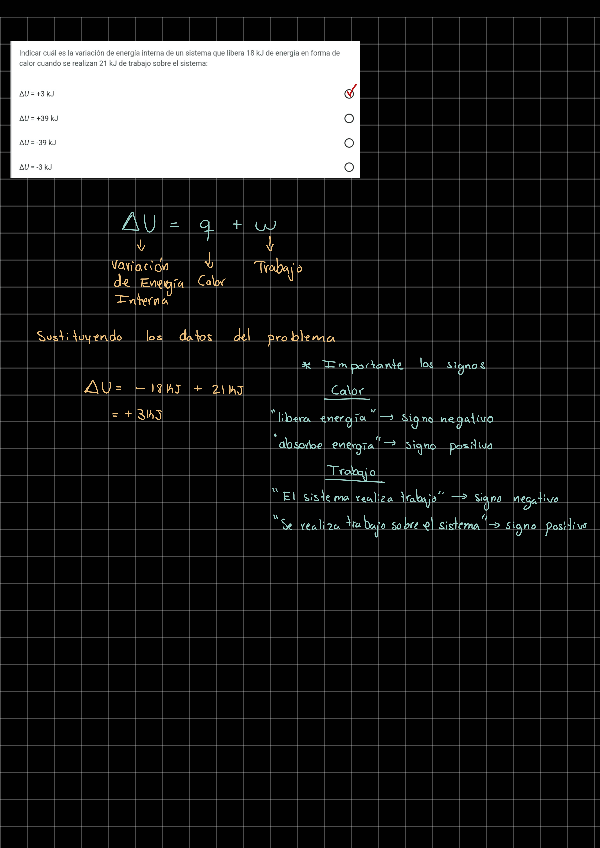 Indicar cuál es la variación de energía interna de un sistema que libera 18 kJ de energía en forma de
calor cuando se realizan 21 kJ de trabajo sobre el sistema:
ΔU = +3 kJ
ΔU = +39 kJ
ΔU = -39 kJ
ΔU = -3 kJ
ΔU = q + w
Variación de Energía Interna
Calor
Trabajo
Sustituyendo los datos del problema
ΔU = - 18 KJ + 21 KJ
= + 3 KJ
* Importante los signos
Calor
"libera energía" → signo negativo
"absorbe energía" → signo positivo
Trabajo
"El sistema realiza trabajo" → signo negativo
"Se realiza trabajo sobre el sistema" → signo positivo